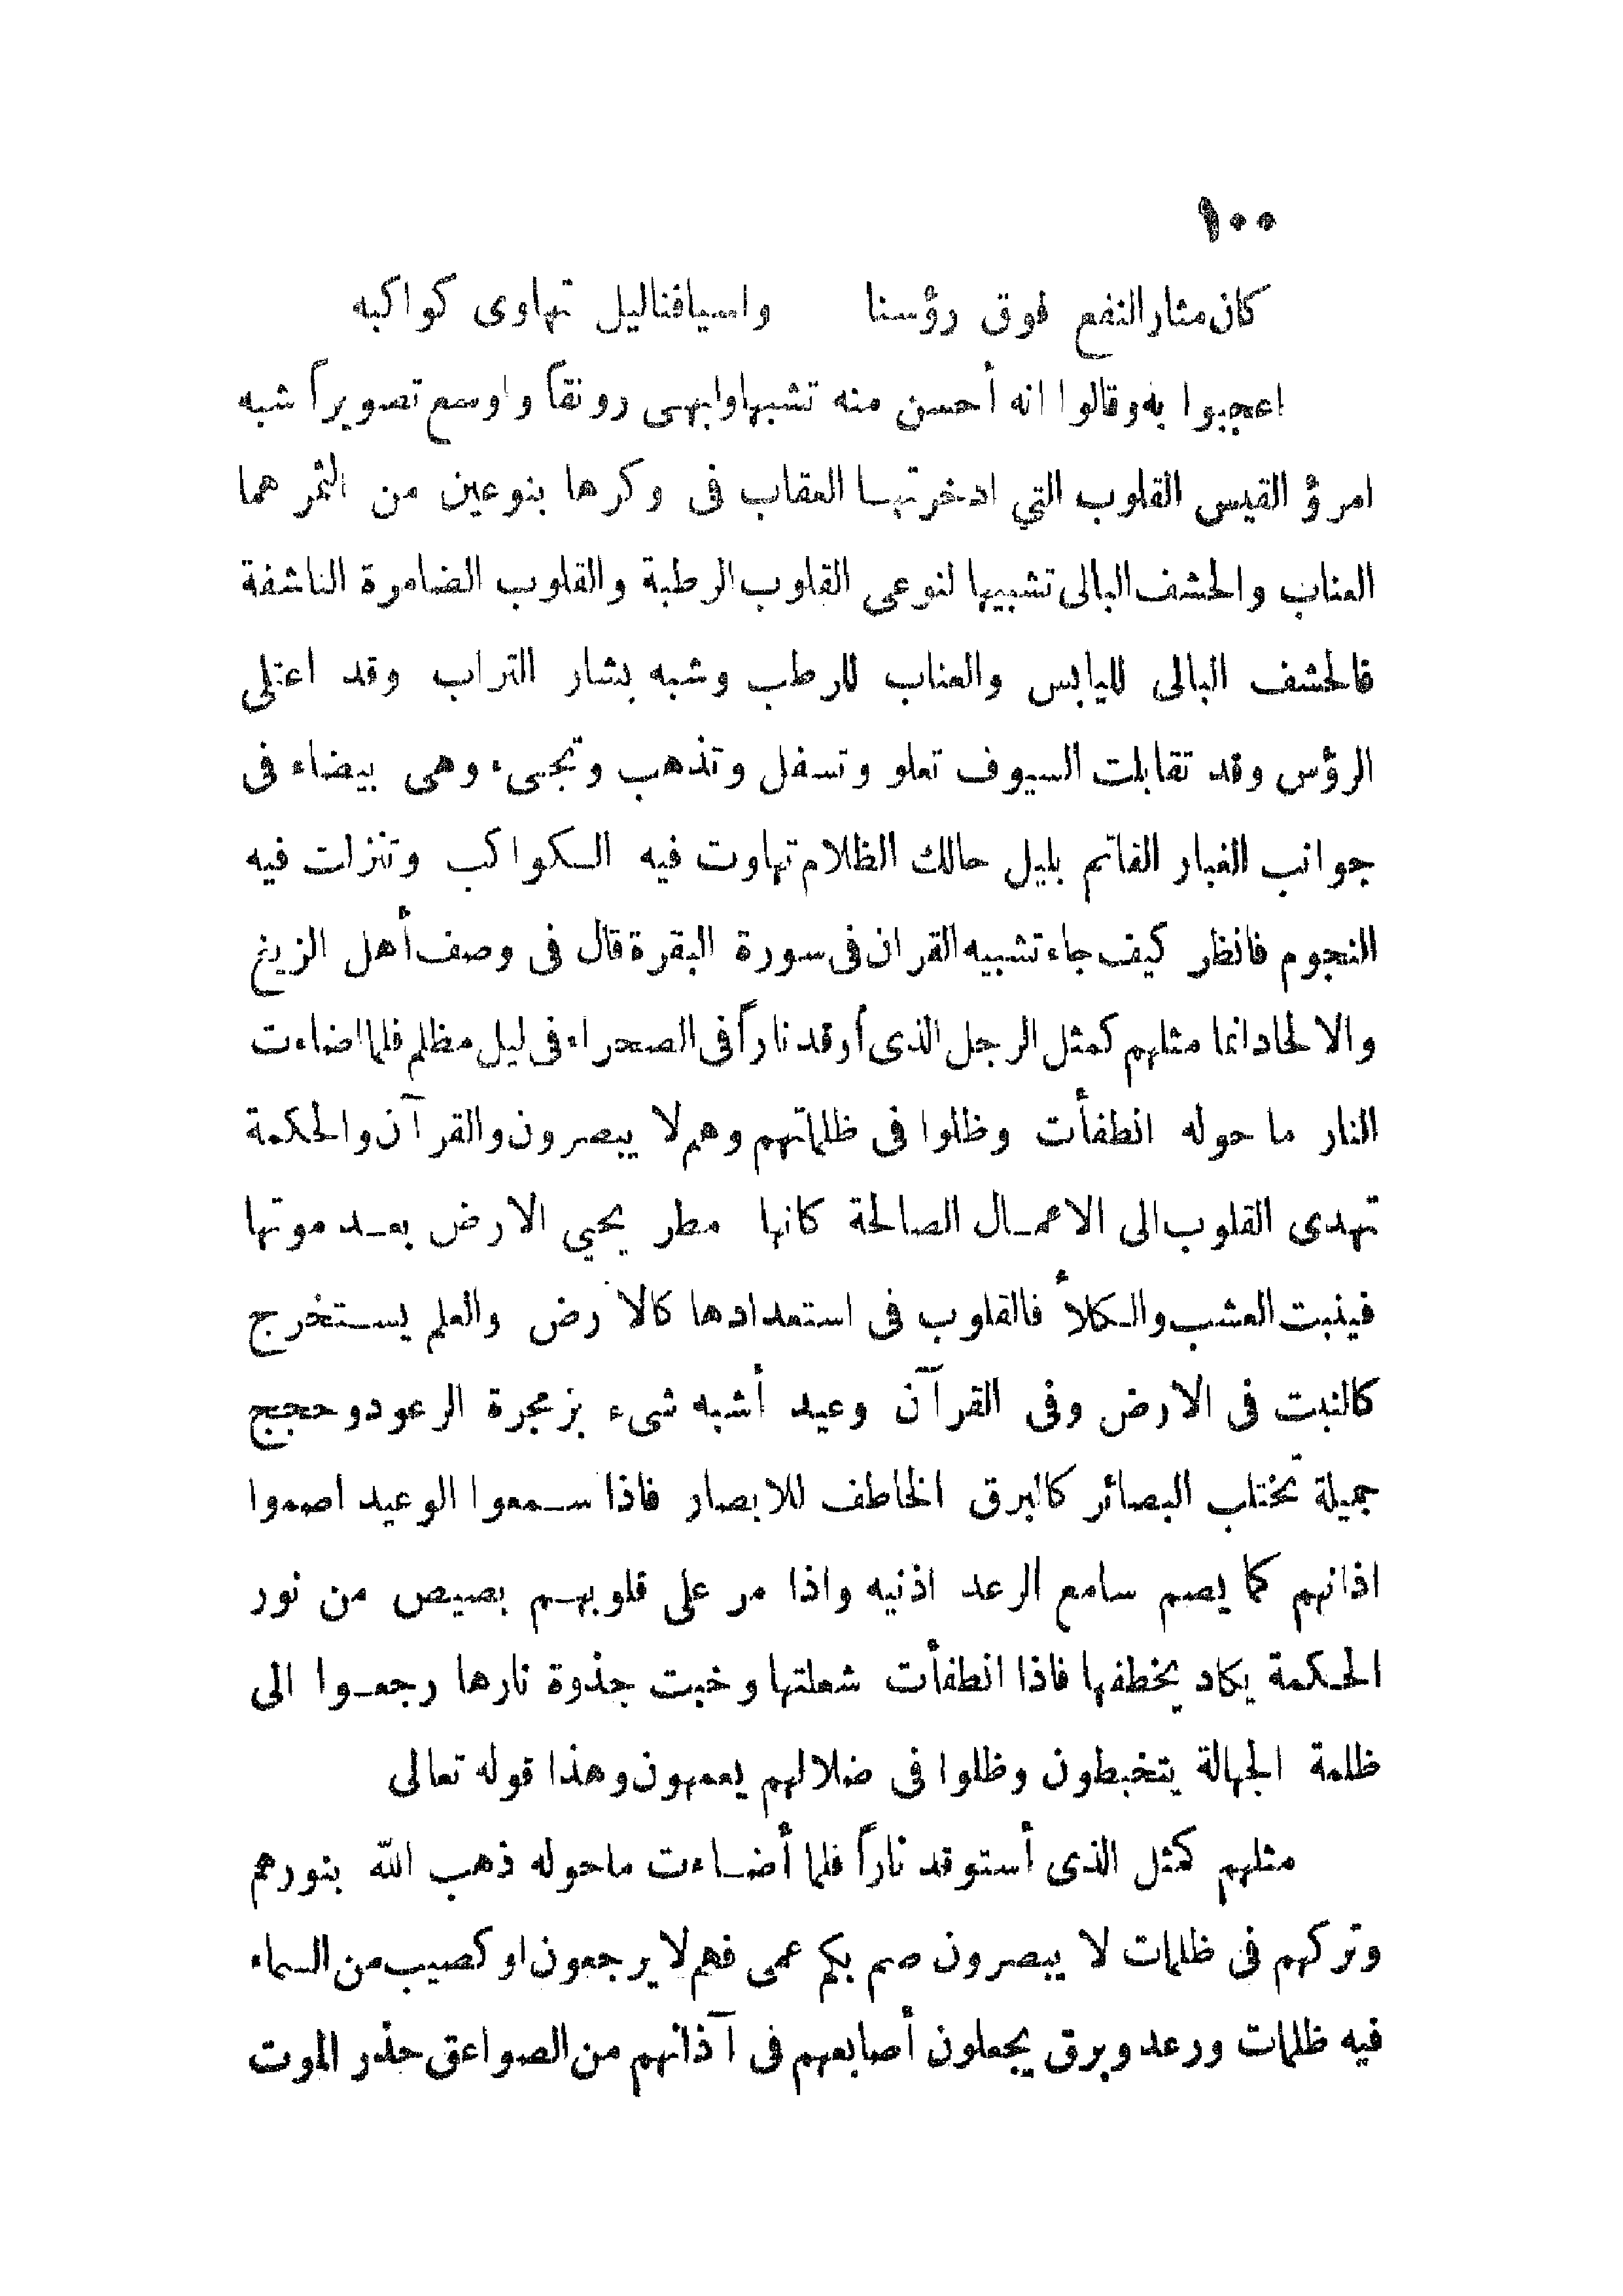 ١٠٠
كان مثار النفع فوق رؤسنا واسيافنا ليل تهاوى كواكبه
اعجبوا به وقالوا انه أحسن منه تشبها وابهى رونقاً واوسع تصويراً شبه
امرؤ القيس القلوب التي ادخرتها العقاب فى وكرها بنوعين من الثمر هما
العناب والحشف البالى تشبيها لنوعى القلوب الرطبة والقلوب الضامرة الناشفة
فالحشف البالى لليابس والعناب للرطب وشبه بشار التراب وقد اعتلى
الرؤس وقد تقابلت السيوف تعلو وتسفل وتذهب وتجىء وهى بيضاء فى
جوانب الغبار القاتم بليل حالك الظلام تهاوت فيه الكواكب وتنزلت فيه
النجوم فانظر كيف جاء تشبيه القران فى سورة البقرة قال فى وصف أهل الزيغ
والالحاد انما مثلهم كمثل الرجل الذى أوقد ناراً فى الصحراء فى ليل مظلم فلما اضاءت
النار ما حوله انطفأت وظلوا فى ظلماتهم وهم لا يبصرون والقرآن والحكمة
تهدى القلوب الى الاعمال الصالحة كانها مطر يحيي الارض بعد موتها
فينبت العشب والكلأ فالقلوب فى استعدادها كالارض والعلم يستخرج
كالنبت فى الارض وفى القرآن وعيد أشبه شىء بزمجرة الرعود وحجج
جميلة تختلب البصائر كالبرق الخاطف للابصار فاذا سمعوا الوعيد اصموا
اذانهم كما يصم سامع الرعد اذنيه واذا مر على قلوبهم بصيص من نور
الحكمة يكاد يخطفها فاذا انطفأت شعلتها وخبت جذوة نارها رجعوا الى
ظلمة الجهالة يتخبطون وظلوا فى ضلالهم يعمهون وهذا قوله تعالى
مثلهم كمثل الذى أستوقد ناراً فلما أضاءت ماحوله ذهب الله بنورهم
وتركهم فى ظلمات لا يبصرون صم بكم عمى فهم لا يرجعون او كصيب من السماء
فيه ظلمات ورعد وبرق يجعلون أصابعهم فى آذانهم من الصواعق حذر الموت